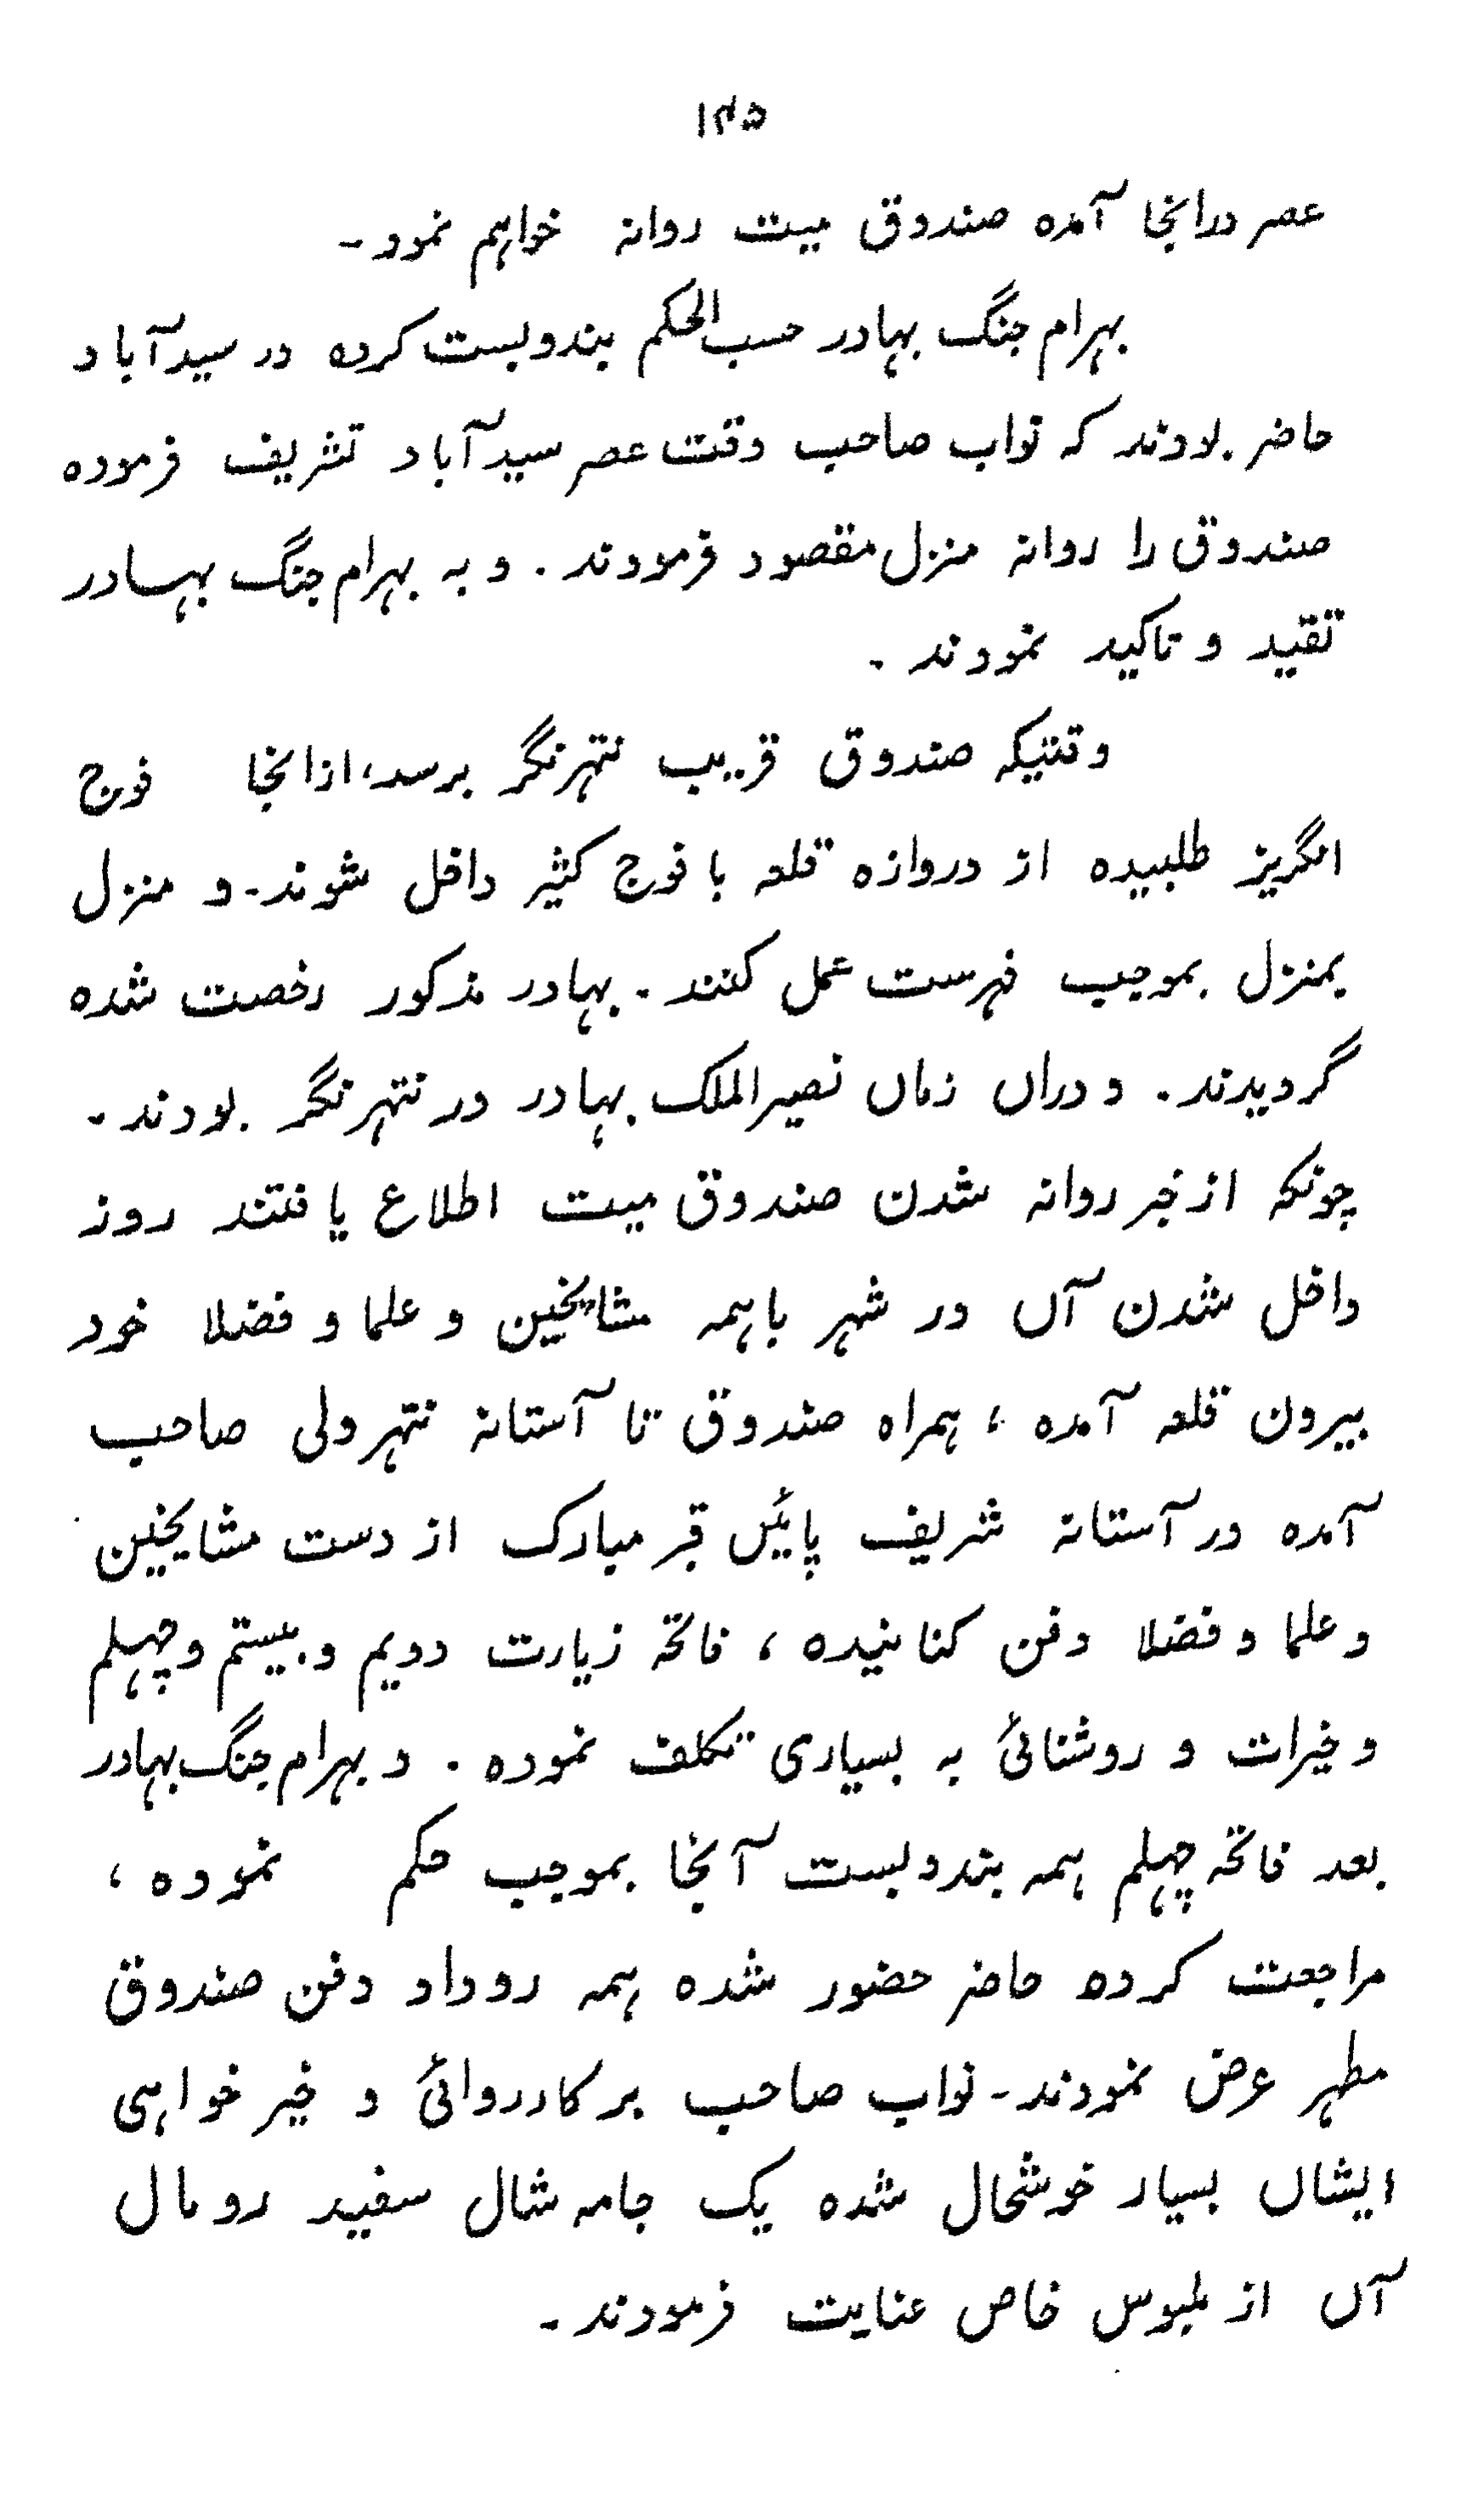 ۱۴۵
عصر درانجا آمده صندوق میت روانہ خواہم نمود۔
بہرام جنگ بہادر حسب الحکم بندوبست کرده در سیدآباد
حاضر بودند کہ نواب صاحب وقت عصر سیدآباد تشریف فرموده
صندوق را روانہ منزل مقصود فرمودند. و بہ بہرام جنگ بہادر
تقید و تاکید نمودند.
وقتیکہ صندوق قریب نتھرنگر برسد، ازانجا فوج
انگریز طلبیده از دروازه قلعہ با فوج کثیر داخل شوند۔ و منزل
بمنزل بموجب فہرست عمل کنند. بہادر مذکور رخصت شده
گردیدند. و دراں زماں نصیرالملک بہادر در نتھرنگر بودند۔
چونکہ از خبر روانہ شدن صندوق میت اطلاع یافتند روز
داخل شدن آں در شہر باہمہ مشایخین و علما و فضلا خود
بیرون قلعہ آمده، ہمراه صندوق تا آستانہ نتھر ولی صاحب
آمده در آستانہ شریف پائیں قبر مبارک از دست مشایخین
و علما و فضلا دفن کنانیده، فاتحہ زیارت دویم و بیستم و چہلم
و خیرات و روشنائی بہ بسیاری تکلف نموده. و بہرام جنگ بہادر
بعد فاتحہ چہلم ہمہ بندوبست آنجا بموجب حکم نموده،
مراجعت کرده حاضر حضور شده ہمہ روداد دفن صندوق
مطہر عرض نمودند۔ نواب صاحب بر کارروائی و خیر خواہی
ایشاں بسیار خوشحال شده یک جامہ شال سفید رومال
آں از ملبوس خاص عنایت فرمودند۔